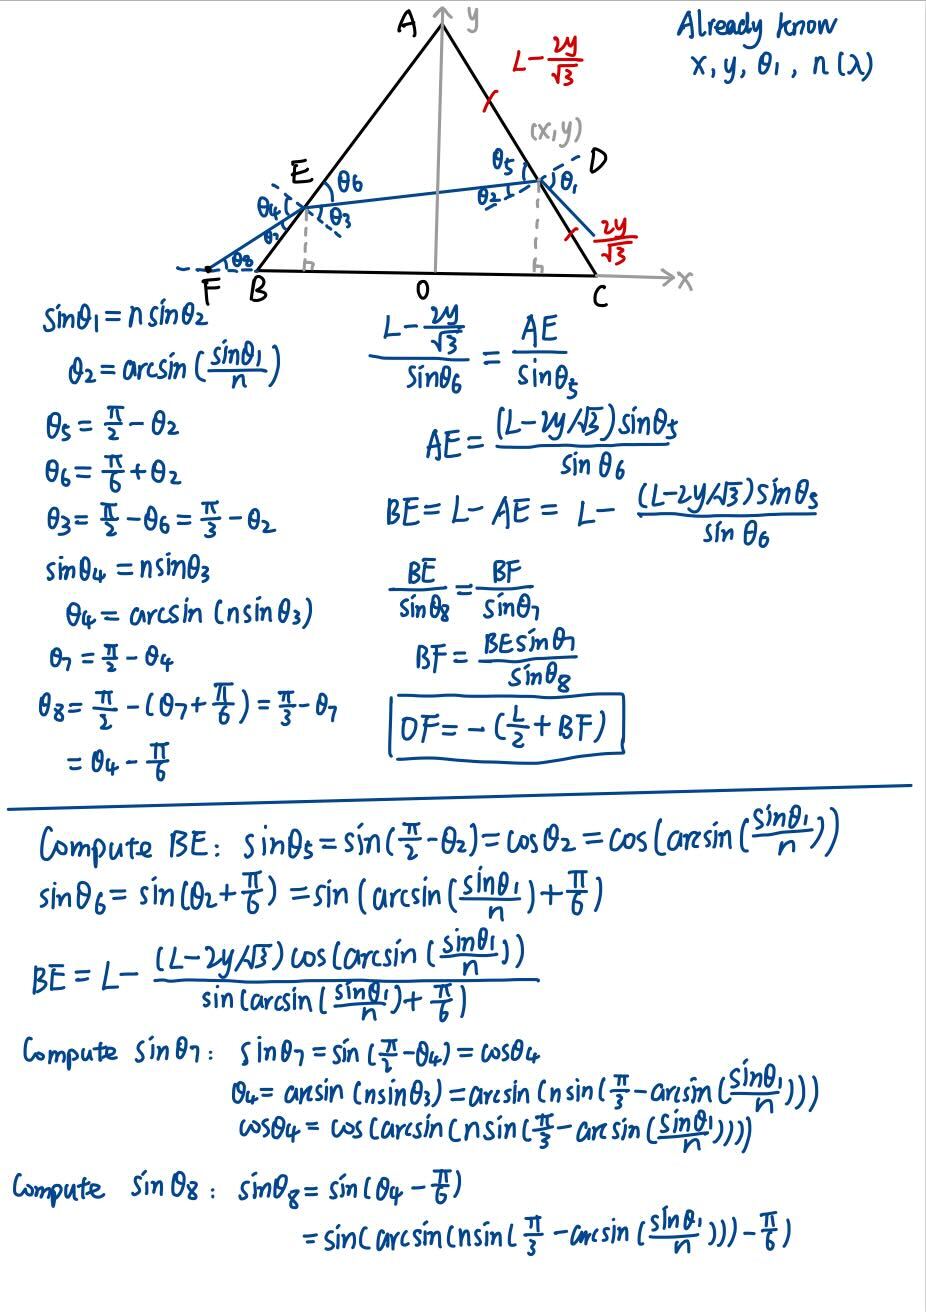 A
y
L - 2y/√3
Already know
x, y, θ₁, n(λ)
(x, y)
E
θ₆
θ₅
D
θ₄
θ₃
θ₂
θ₁
θ₂
θ₈
2y/√3
F
B
O
C
x
sinθ₁ = n sinθ₂
θ₂ = arcsin (sinθ₁/n)
θ₅ = π/2 - θ₂
θ₆ = π/6 + θ₂
θ₃ = π/2 - θ₆ = π/3 - θ₂
sinθ₄ = n sinθ₃
θ₄ = arcsin (n sinθ₃)
θ₇ = π/2 - θ₄
θ₈ = π/2 - (θ₇ + π/6) = π/3 - θ₇
= θ₄ - π/6
(L - 2y/√3)/sinθ₆ = AE/sinθ₅
AE = (L - 2y/√3) sinθ₅ / sin θ₆
BE = L - AE = L - (L - 2y/√3) sinθ₅ / sin θ₆
BE/sinθ₈ = BF/sinθ₇
BF = BE sinθ₇ / sinθ₈
OF = - (L/2 + BF)
Compute BE: sinθ₅ = sin(π/2 - θ₂) = cosθ₂ = cos(arcsin(sinθ₁/n))
sinθ₆ = sin(θ₂ + π/6) = sin (arcsin(sinθ₁/n) + π/6)
BE = L - (L - 2y/√3) cos(arcsin (sinθ₁/n)) / sin (arcsin(sinθ₁/n) + π/6)
Compute sinθ₇: sinθ₇ = sin (π/2 - θ₄) = cosθ₄
θ₄ = arcsin (n sinθ₃) = arcsin (n sin(π/3 - arcsin(sinθ₁/n)))
cosθ₄ = cos (arcsin (n sin (π/3 - arcsin (sinθ₁/n))))
Compute sinθ₈: sinθ₈ = sin (θ₄ - π/6)
= sin(arcsin(n sin(π/3 - arcsin (sinθ₁/n))) - π/6)